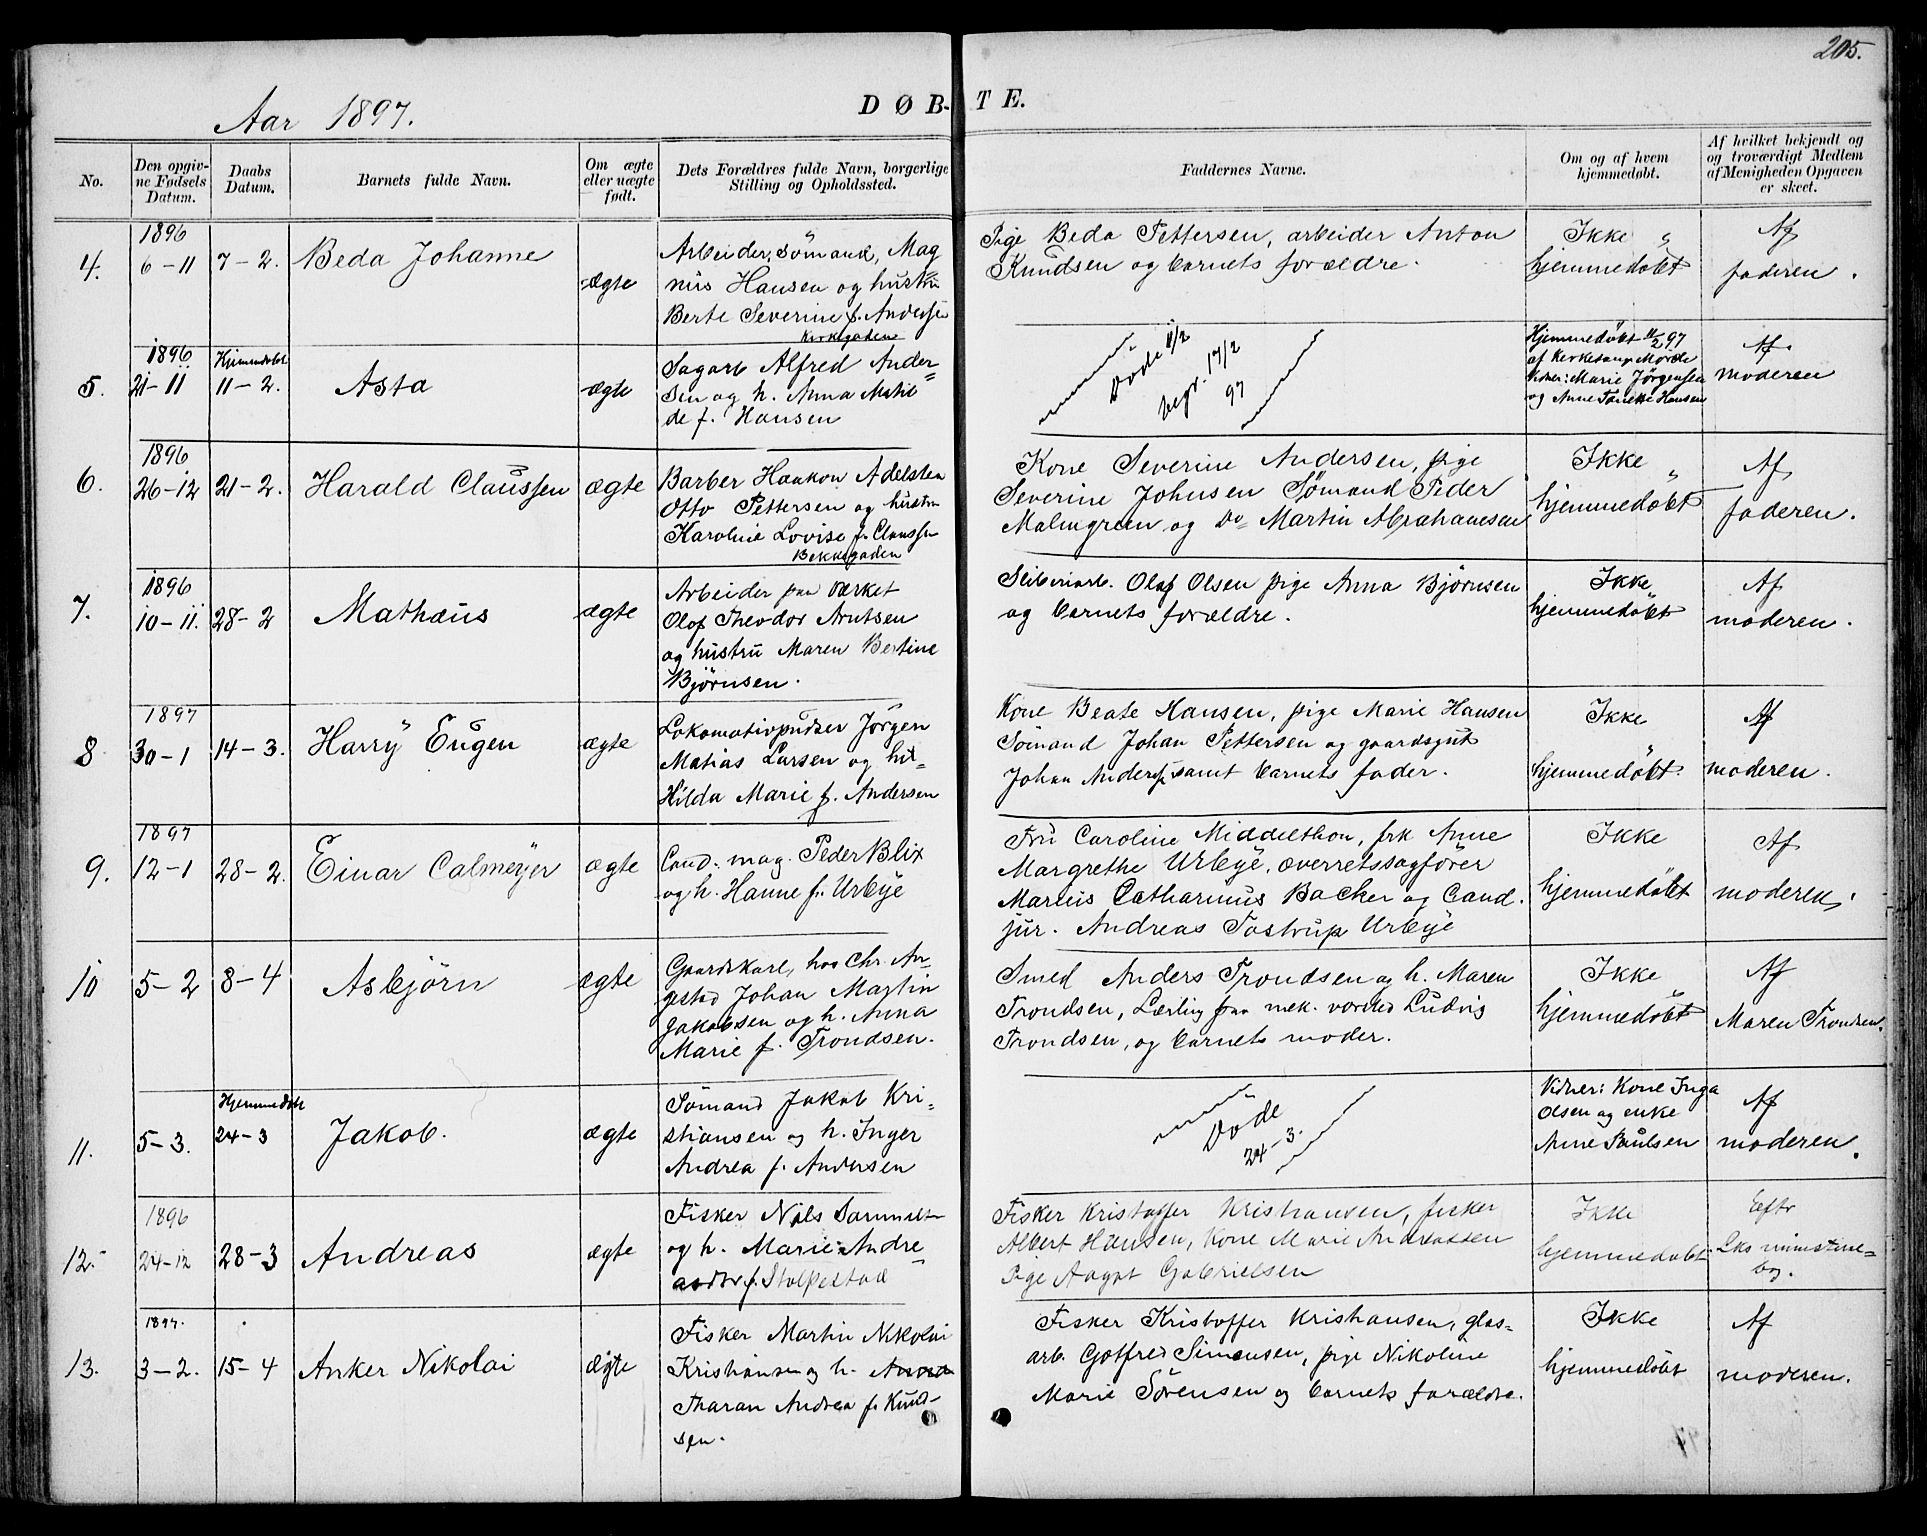 205.
Aar 1897.
DØB-TE.
No.
Den opgiv-
ne Fødsels
Datum.
Daabs
Datum.
Barnets fulde Navn.
Om ægte
eller uægte
født.
Dets Forældres fulde Navn, borgerlige
Stilling og Opholdssted.
Faddernes Navne.
Om og af hvem
hjemmedøbt.
Af hvilket bekjendt og
og troværdigt Medlem
af Menigheden Opgaven
er skeet.
4.
1896
6-11
7-2.
Beda Johanne
ægte
Arbeider, sömand, Mag
nus Hansen og hustru
Berte Severine f. Andersen
Kirkegaden
Pige Beda Pettersen, arbeider Anton
Knudsen og barnets forældre.
Ikke
hjemmedøbt
Af
faderen.
5.
1896
21-11
Hjemmedøbt
11-2.
Asta
ægte
Sagarb Alfred Ander=
sen og h. Anna Matil
de f. Hansen
Döde 11/2
begr. 17/2
97
Hjemmedöbt 11/2 97
af kirkesang. Mörde
Vidner: Marie Jörgensen
og Anne Tonette Hansen
Af
moderen
6.
1896
26-12
21-2.
Harald Claussen
ægte
Barber Haakon Adelsten
Otto Pettersen og hustru
Karoline Lovise f. Claussen
Bekkegaden
Kone Severine Andersen, pige
Severine Johnsen Sömand Peder
Malmgreen og Do Martin Abrahamsen
Ikke
hjemmedöbt
Af
faderen.
7.
1896
10-11.
28-2
Mathæus
ægte
Arbeider paa værket
Olaf Theodor Arntsen
og hustru Maren Bertine
Björnsen.
Sliberiarb. Olaf Olsen pige Anna Björnsen
og barnets forældre.
Ikke
hjemmedöbt
Af
moderen.
8
1897
30-1
14-3.
Harry Eugen
ægte
Lokomotivpudser Jörgen
Matias Larsen og hu=
Hilda Marie f. Andersen
Kone Beate Hansen, pige Marie Hansen
Sömand Johan Pettersen og gaardsgut
Johan Anders. samt barnets fader.
Ikke
hjemmedöbt.
Af
moderen.
9.
1897
12-1
28-2.
Einar Calmeyer
ægte
Cand. mag. Peder Blix
og h. Hanne f. Urbye
Fru Caroline Middelthon, frk Anne
Margrethe Urbye, overretssagförer
Marius Catharinus Backer og Cand.
jur. Andreas Tostrup Urbye
Ikke
hjemmedöbt
Af
moderen.
10
5-2
8-4
Asbjörn
ægte
Gaardskarl, hos Chr. An=
gestad Johan Martin
Jakobsen og h. Anna
Marie f. Trondsen.
Smed Anders Trondsen og h. Maren
Trondsen, Lærling paa mek. værksted Ludvig
Trondsen, og barnets moder.
Ikke
hjemmedöbt
Af
Maren Trondsen.
11.
5-3.
Hjemmedöbt
24-3
Jakob.
ægte
Sömand Jakob Kri=
stiansen og h. Inger
Andrea f. Andersen
Döde
24-3.
Vidner: Kone Inga
Olsen og enke
Anne Paulsen
Af
moderen.
12.
1896
24-12
28-3
Andreas
ægte
Fisker Nils
og h. Marie Andre
f. Stolpestad
Fisker Kristoffer Kristiansen, fisker
Albert Hansen, Kone Marie Andreassen
Pige Aagot Gabrielsen
Ikke
hjemmedøbt
Efter
bog.
13.
1897.
3-2.
15-4
Anker Nikolai
ægte
Fisker Martin Nikolai
Kristiansen og h.
Tharan Andrea f. Knud-
sen.
Fisker Kristoffer Kristiansen, glas-
arb. Gotfred Simensen, pige Nikoline
Marie Sörensen og barnets forældre.
Ikke
hjemmedöbt
Af
moderen.